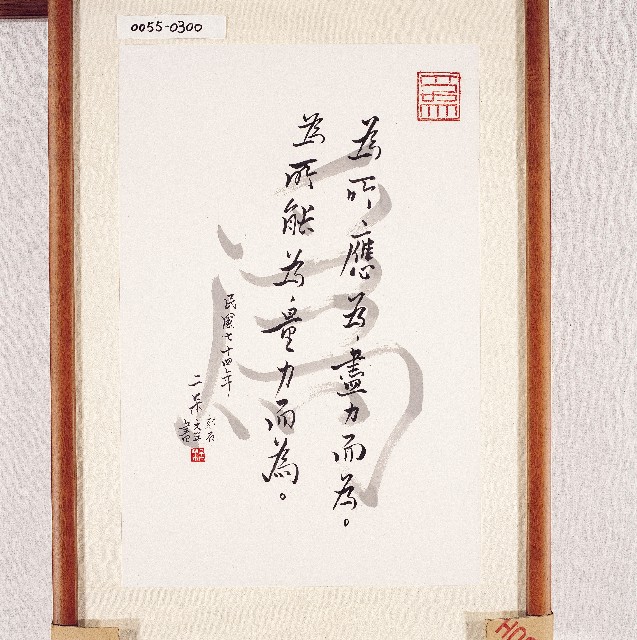 0055-0300
為所應為，盡力而為。
為所能為，量力而為。
民國七十四年，
二呆
為